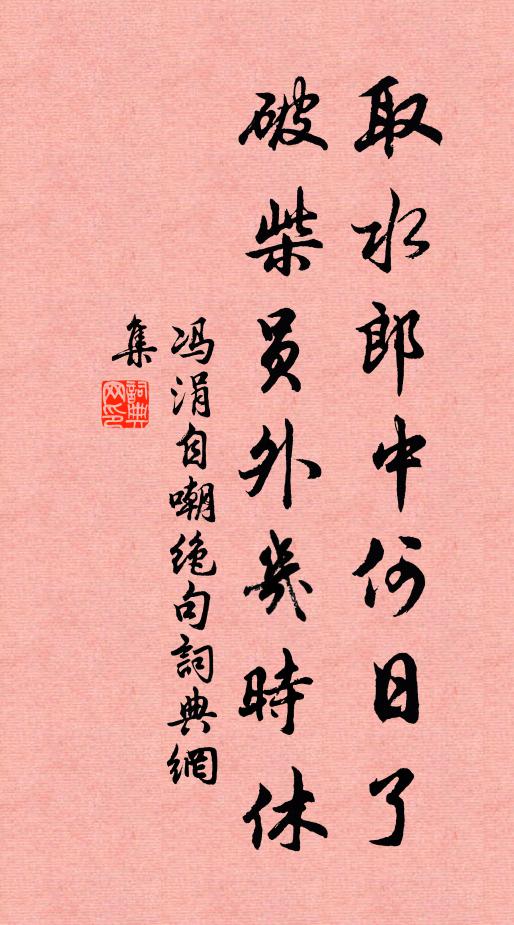 取水郎中何日了
破柴员外幾時休
冯涓自嘲绝句詞典網
集
詞典
网印